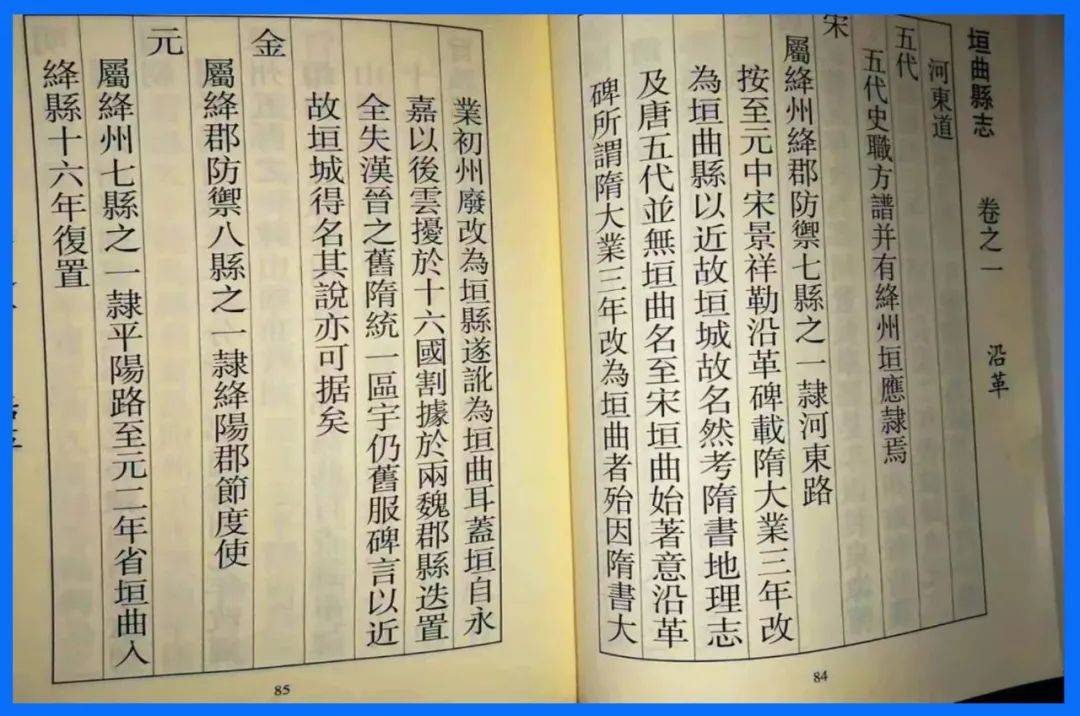 垣曲縣志 卷之一 沿革
河東道
五代
五代史職方譜并有絳州垣應隷焉
宋
屬絳州絳郡防禦七縣之一隷河東路
按至元中宋景祥勒沿革碑載隋大業三年改
為垣曲縣以近故垣城故名然考隋書地理志
及唐五代並無垣曲名至宋垣曲始著意沿革
碑所謂隋大業三年改為垣曲者殆因隋書大
84
業初州廢改為垣縣遂訛為垣曲耳蓋垣自永
嘉以後雲擾於十六國割據於兩魏郡縣迭置
全失漢晉之舊隋統一區宇仍舊服碑言以近
故垣城得名其說亦可据矣
金
屬絳郡防禦八縣之一隷絳陽郡節度使
元
屬絳州七縣之一隷平陽路至元二年省垣曲入
絳縣十六年復置
85